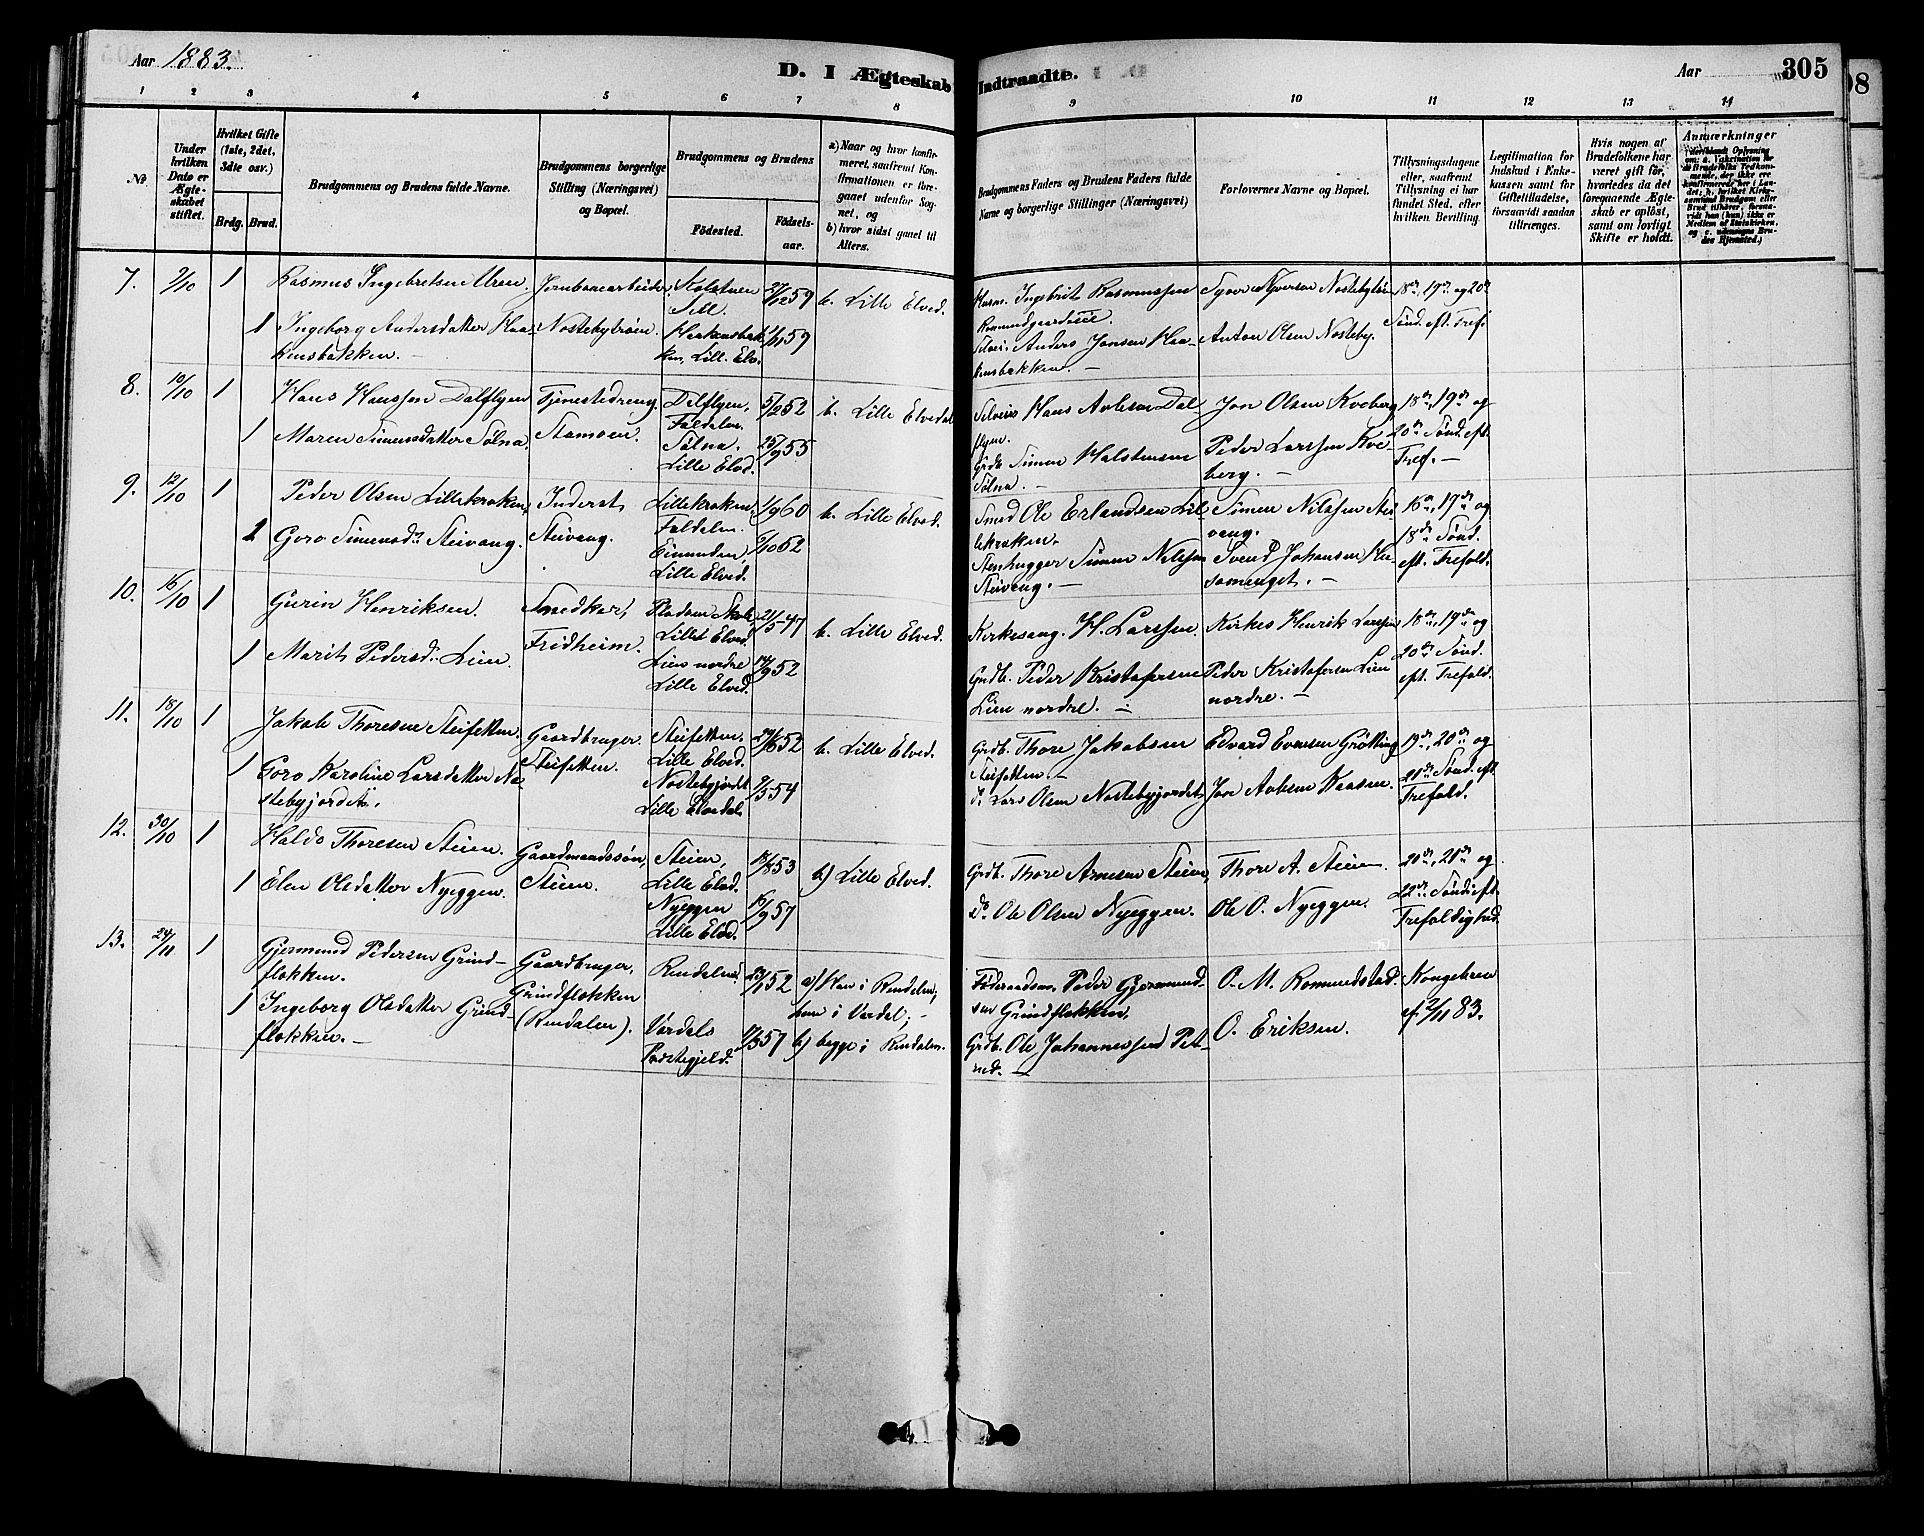 Aar 1883.
D. I Ægteskab Indtraadte.
Aar
305
1 2 3 4 5 6 7 8 9 10 11 12 13 14
No.
Under hvilken Dato er Ægteskabet stiftet.
Hvilket Gifte (1ste, 2det, 3die osv.)
Brdg. Brud.
Brudgommens og Brudens fulde Navne.
Brudgommens borgerlige Stilling (Næringsvei) og Bopæl.
Brudgommens og Brudens
Födested.
Födsels-aar.
a) Naar og hvor konfirmeret, saafremt Konfirmationen er foregaaet udenfor Sognet, og
b) hvor sidst gaaet til Alters.
Brudgommens Faders og Brudens Faders fulde Navne og borgerlige Stillinger (Næringsvei)
Forlovernes Navne og Bopæl.
Tillysningsdagene eller, saafremt Tillysning ei har fundet Sted, efter hvilken Bevilling.
Legitimation for Indskud i Enkekassen samt for Giftetilladelse, forsaavidt saadan tiltrænges.
Hvis nogen af Brudefolkene har været gift før, hvorledes da det foregaaende Ægteskab er opløst, samt om lovligt Skifte er holdt.
Anmærkninger
7. 2/10 1 Rasmus Ingebretsen Uren. Jernbanearbeider 59 b. Lille Elved. Ingebrit Rasmussen
Syver Syversen Nostebytrøen 18de, 19de og 20de
1 Ingeborg Andersdatter Haakensbakken. Nostebytrøen. Haakensbakken, Lill. Elv. 59 Anders Jansen Haakensbakken.
Anton Olsen Nosteby. Sönd. eft. Tref.
8. 10/10 1 Hans Hanssen Dalflyen Tjenestedreng, Stamoen. Dalflyen, Foldalen. 5/2 52 b. Lille Elvedal
Selveier Hans Dalflyen. Jon Olsen Kveberg 18de, 19de og
1 Maren Simensdatter Sølna. Sølna. Lille Elved. 25/9 55
Grdb. Simen Halstensen Sølna. Peder Larssen Kveberg. 20de Sönd. eft. Tref.
9. 12/10 1 Peder Olsen Lillekroken, Inderst, Steivang. Lillekroken Foldalen. 1/9 60 b. Lille Elved.
Smed Ole Erlandsen Lillekroken. Simen Nilssen Steivang. 16de, 17de og
1 Goro Simensd. Steivang. Eimunden, Lille Elved. 2/10 62
Stenhugger Simen Nilssen Steivang. Svend Johansen 18de Sönd. eft. Trefold.
10. 16/10 1 Gurin Henriksen. Snedker, Fridheim. Lille Elved. 21/5 47 b. Lille Elved.
Kirkesang. H. Larssen. Kirkes Henrik Larssen 18de, 19de og
1 Marit Pedersd. Lien. Lien nordre Lille Elved. 14/9 52
Grdb. Peder Kristofersen Lien nordre. Peder Kristofersen Lien nordre. 20de Sönd. eft. Trefold.
11. 18/10 1 Jakob Thoresen Steifetten. Gaardbruger. Steifetten. Steifetten, Lille Elved. 24/6 52 b. Lille Elved.
Grdb. Thore Jakobsen Steifetten. Edvard Evensen Grötting 19de, 20de og
1 Goro Karoline Larsdatter Nostebyjordet. Nostebyjordet Lille Elvedal 54
d. Lars Olsen Nostebyjordet. 21de Sönd. eft. Trefold.
12. 30/10 1 Haldo Thoresen Steien. Gaardmandssön, Steien. Steien, Lille Elved. 18/8 53 b) Lille Elved.
Grdb. Thore Arnesen Steien, Thore A. Steien. 20de, 21de og
1 Elen Olsdatter Nyeggen. Nyeggen Lille Elved. 16/9 57
do. Ole Olsen Nyeggen. Ole O. Nyeggen. 22de Sönd: eft. Trefoldighed.
13. 24/11 1 Gjermund Pedersen Grindflokken. Gaardbruger, Grindflokken (Rendalen). Rendalen. 52 a) Han i Rendalen, hun i Værdal;
Föderaadsm. Peder Gjermundsen Grindflokken. O. M. Romundstad. Kongebrev
1 Ingeborg Olsdatter Grindflokken. Værdals Præstegjeld. 57 b) begge i Rendalen.
Grdb. Ole Johannessen O. Eriksen. af 2/11 83.